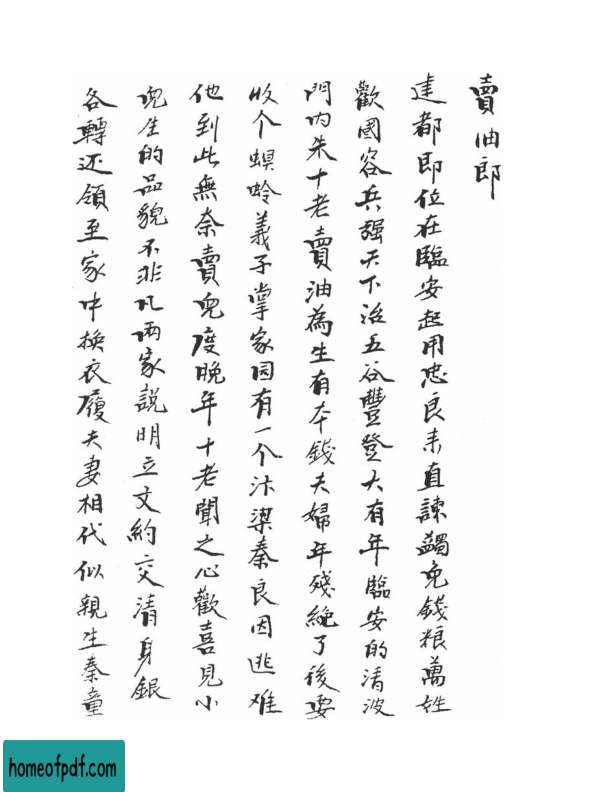 賣油郎
建都即位在臨安起用忠良来直諫蠲免錢粮萬姓
歡國容兵强天下治五谷豐登大有年臨安的清波
門内朱十老賣油為生有本錢夫婦年殘絶了後要
收个螟蛉義子掌家园有一个汴梁秦良因逃难
他到此無奈賣兒度晚年十老聞之心歡喜見小
兒生的品貌不非凡两家説明立文約交清身銀
各轉还領至家中换衣履夫妻相代似親生秦童
homeofpdf.com